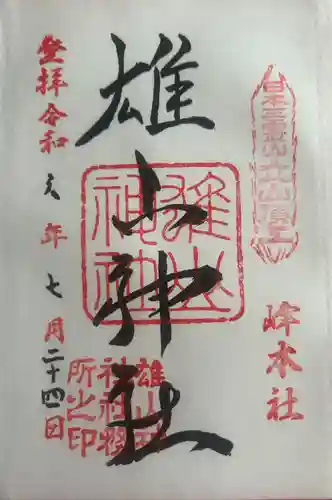 日本三霊山立山頂上
峰本社
雄山神社
雄山神社
雄山神
社社務
所之印
登拝令和元年七月二十四日